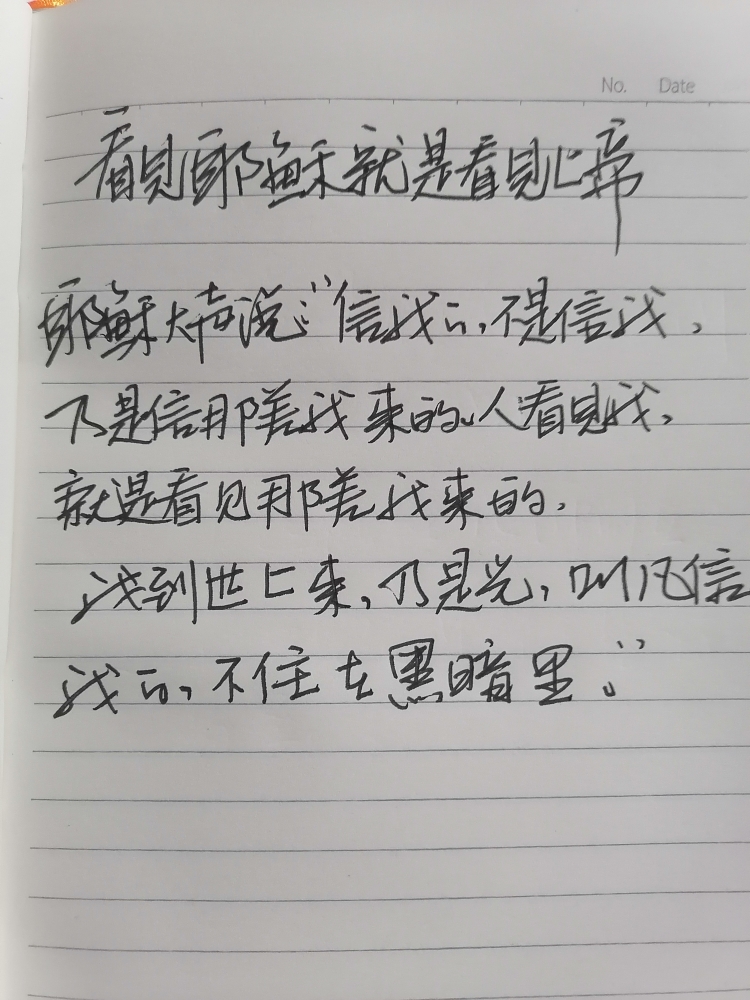 No. Date
看见耶稣就是看见上帝
耶稣大声说:“信我的,不是信我,
乃是信那差我来的。人看见我,
就是看见那差我来的。
我到世上来,乃是光,叫凡信
我的,不住在黑暗里。”